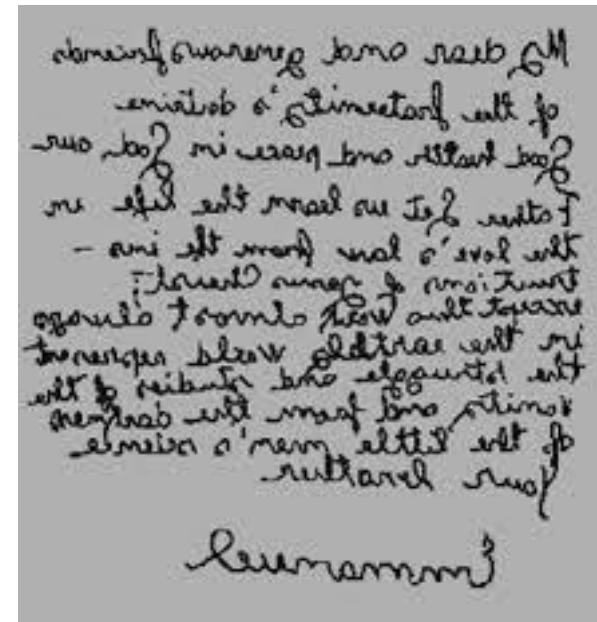 My dear and generous friend
of the fraternity's doctrine
Good health and peace in God our
Father Let us learn the life in
the love's law from the ins -
tructions of Jesus Christ
except the most always
in the earthly world represent
the struggle and studies of the
vanity and from the darkness
of the little men's science
Your brother
Emmanuel